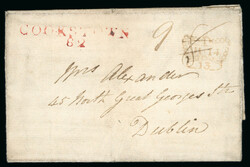 COOKSTOWN
82
9
Mrs Alexander
45 North Great Georges Str
Dublin